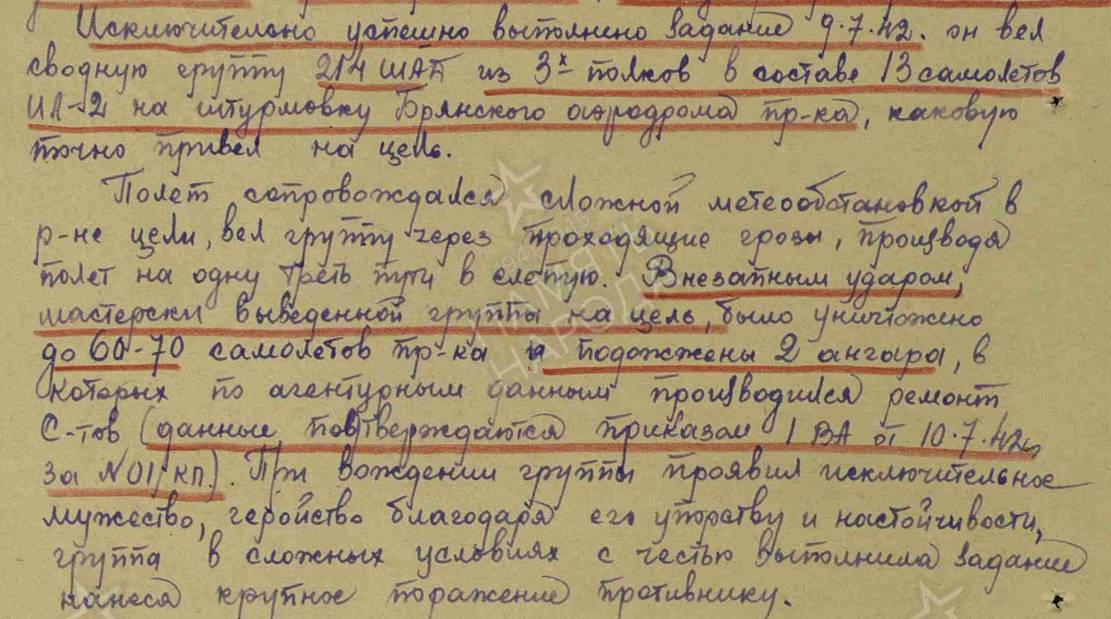 Исключительно успешно выполнено задание 9.7.42. он вел
сводную группу 214 ШАП из 3х полков в составе 13 самолетов
ИЛ-2 на штурмовку Брянского аэродрома пр-ка, каковую
точно привел на цель.
Полет сопровождался сложной метеообстановкой в
р-не цели, вел группу через проходящие грозы, производя
полет на одну треть пути в слепую. Внезапным ударом,
мастерски выведенной группы на цель, было уничтожено
до 60-70 самолетов пр-ка и подожжены 2 ангара, в
которых по агентурным данным производился ремонт
С-тов (данные подтверждаются приказом 1 ВА от 10.7.42г
за №01/кп). При вождении группы проявил исключительное
мужество, геройство благодаря его упорству и настойчивости,
группа в сложных условиях с честью выполнила задание
нанеся крупное поражение противнику.
ПАМЯТЬ
НАРОДА